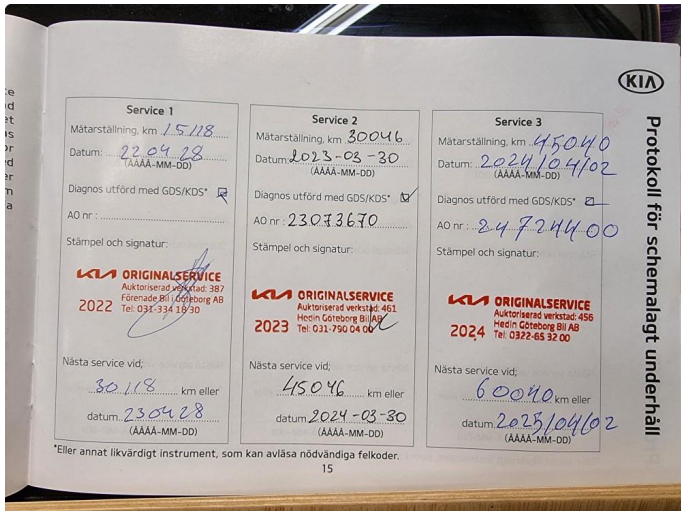 KIA
Protokoll för schemalagt underhåll
Service 1
Mätarställning, km 15118
Datum: 22 04 28
(ÅÅÅÅ-MM-DD)
Diagnos utförd med GDS/KDS*
AO nr :
Stämpel och signatur:
KIA ORIGINALSERVICE
Auktoriserad verkstad: 387
Förenade Bil i Göteborg AB
2022 Tel: 031-334 18 30
Nästa service vid;
30118 km eller
datum 23 04 28
(ÅÅÅÅ-MM-DD)
Service 2
Mätarställning, km 30046
Datum: 2023-03-30
(ÅÅÅÅ-MM-DD)
Diagnos utförd med GDS/KDS*
AO nr : 23073670
Stämpel och signatur:
KIA ORIGINALSERVICE
Auktoriserad verkstad: 461
Hedin Göteborg Bil AB
2023 Tel: 031-790 04 00
Nästa service vid;
45046 km eller
datum 2024-03-30
(ÅÅÅÅ-MM-DD)
Service 3
Mätarställning, km 45040
Datum: 2024/04/02
(ÅÅÅÅ-MM-DD)
Diagnos utförd med GDS/KDS*
AO nr : 24724400
Stämpel och signatur:
KIA ORIGINALSERVICE
Auktoriserad verkstad: 456
Hedin Göteborg Bil AB
2024 Tel: 0322-65 32 00
Nästa service vid;
60040 km eller
datum 2025/04/02
(ÅÅÅÅ-MM-DD)
*Eller annat likvärdigt instrument, som kan avläsa nödvändiga felkoder.
15